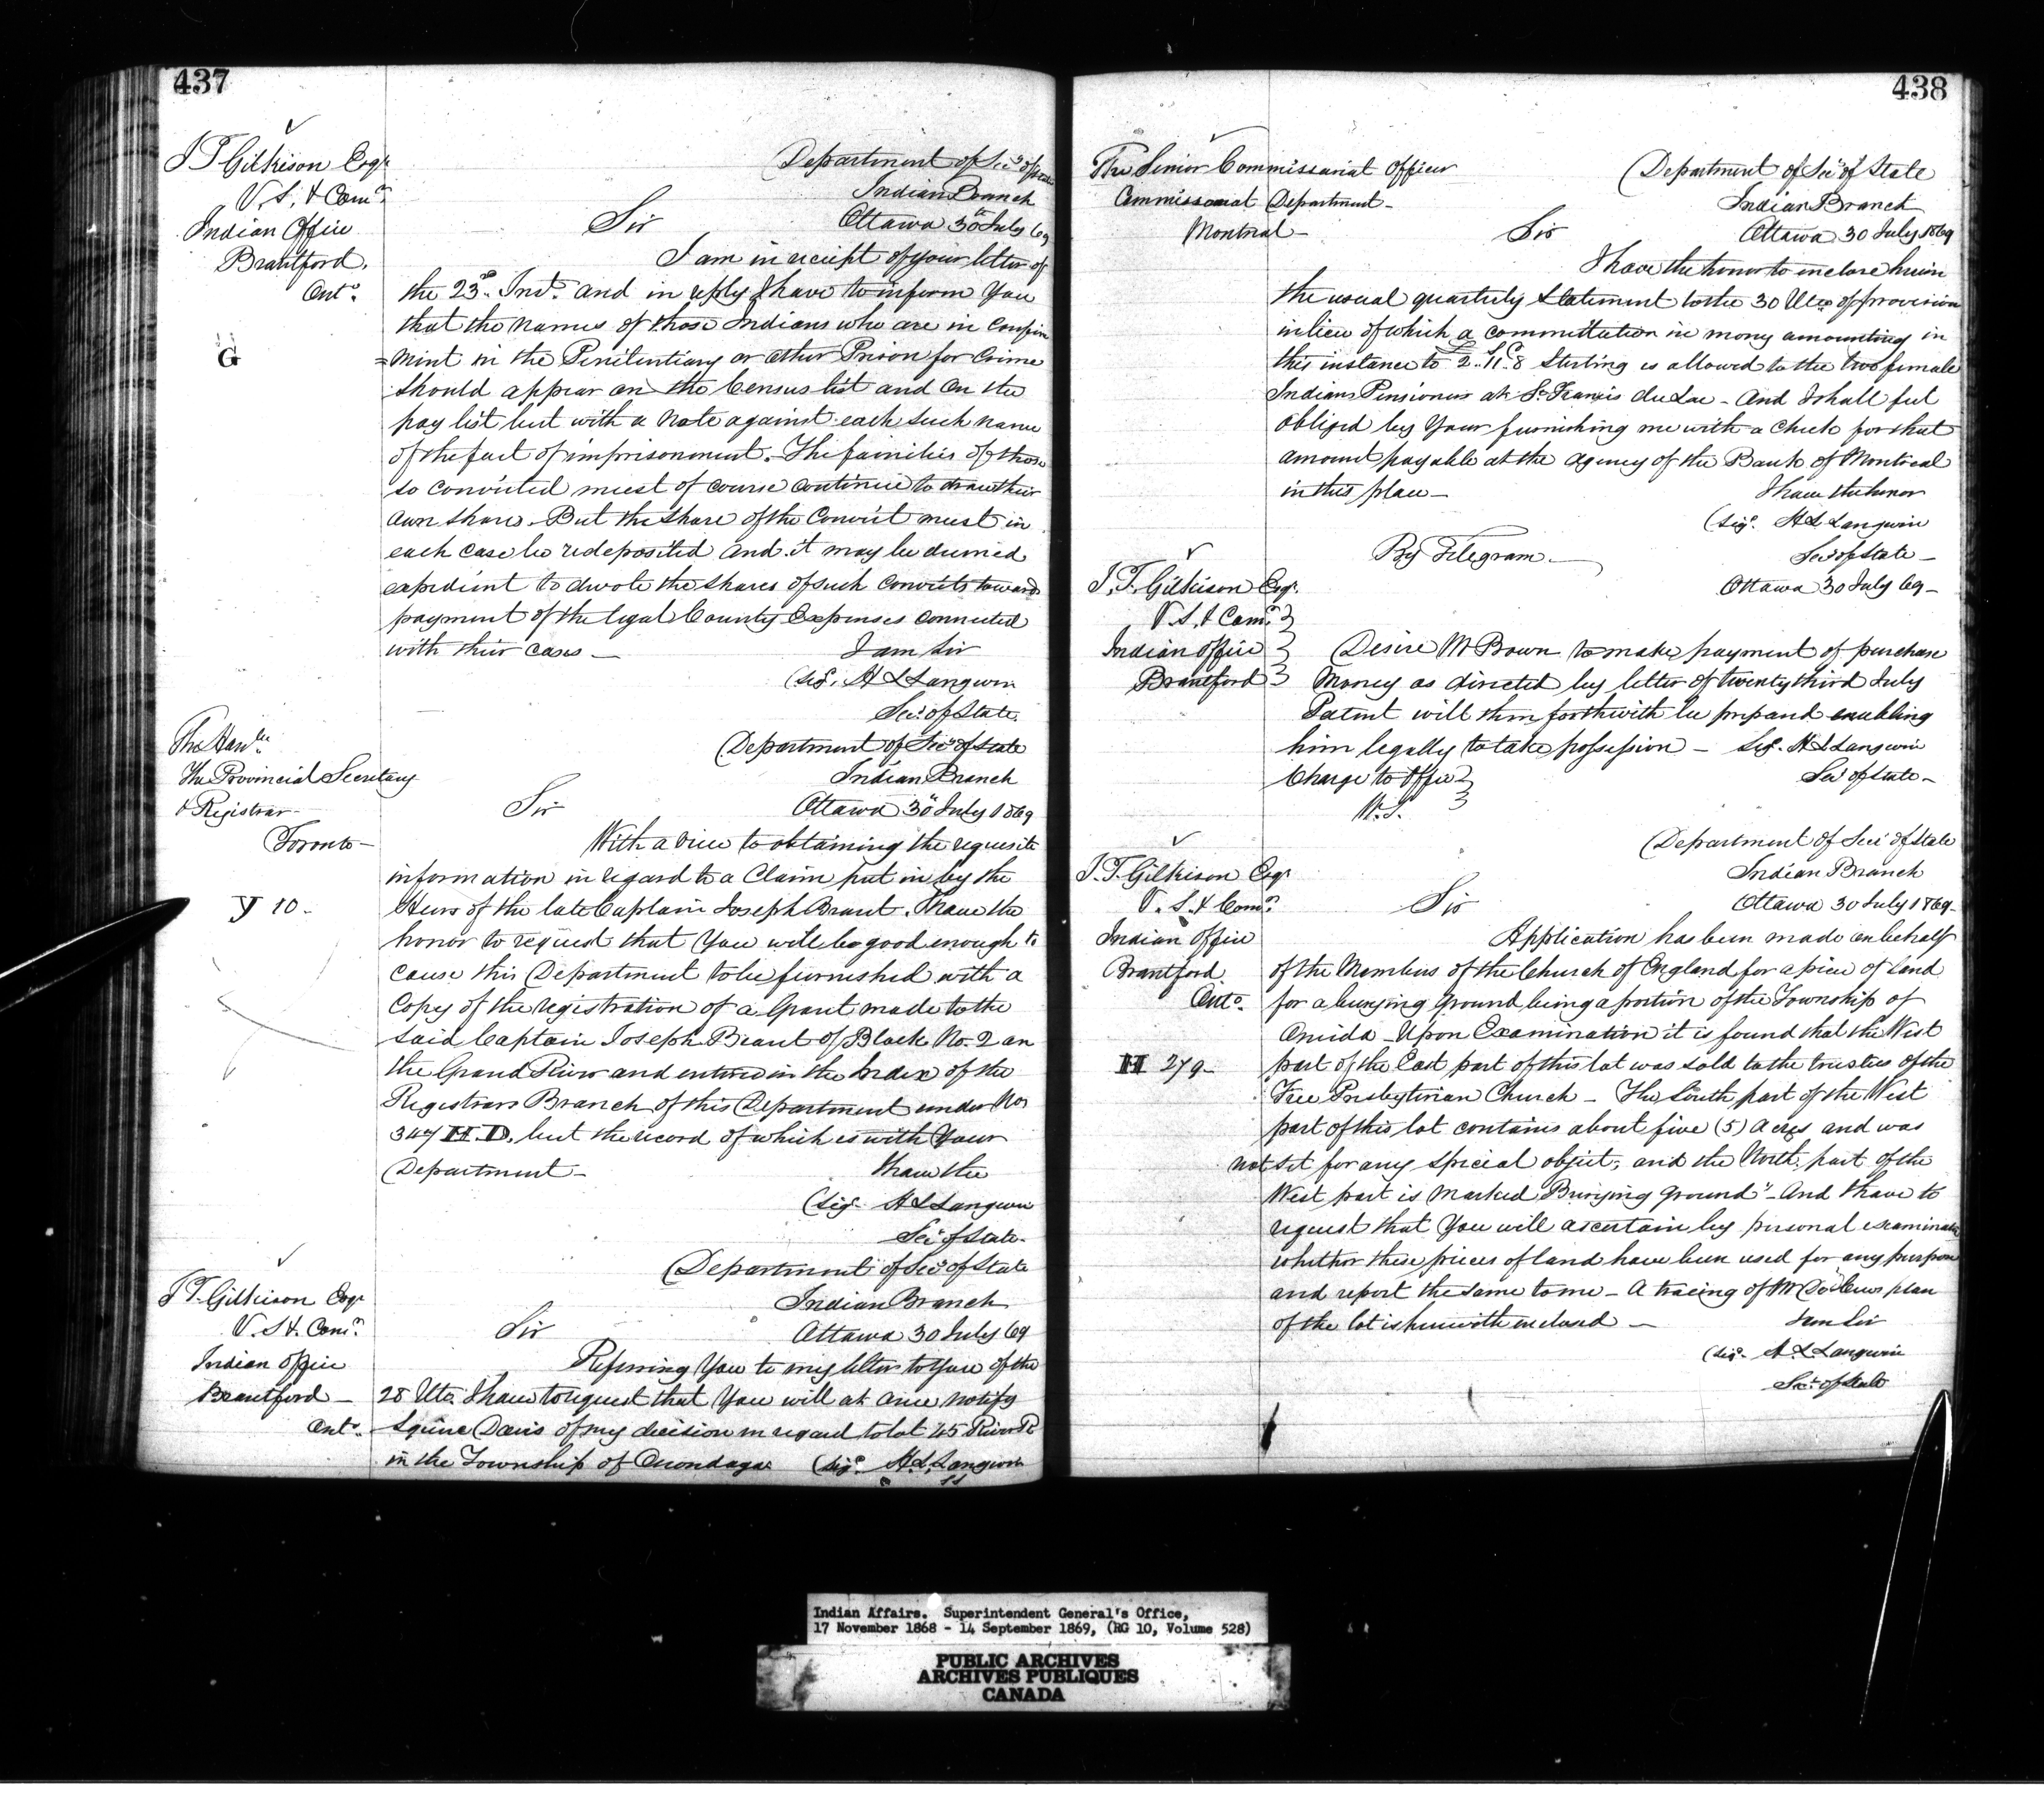 437
J T Gilkison Esqr
V. S. & Comr
Indian Office
Brantford.
Onto.
G
Department of Secy of State
Indian Branch
Sir Ottawa 30th July 69
I am in receipt of your letter of
the 23rd Inst. and in reply I have to inform You
that the names of those Indians who are in Confine
=ment in the Penitentiary or other Prison for Crime
should appear on the Census list and on the
pay list but with a note against each such name
of the fact of imprisonment. The families of those
so convicted must of course continue to draw their
own shares. But the share of the Convict must in
each case be redeposited and it may be deemed
expedient to devote the shares of such Convicts towards
payment of the legal County Expenses connected
with their cases _
I am Sir
(Sigd. H L Langevin
Secy of State.
The Honble
The Provincial Secretary
& Registrar
Toronto _
Y 10 _
Department of Secy of State
Indian Branch
Sir Ottawa 30th July 1869
With a view to obtaining the requisite
information in regard to a Claim put in by the
Heirs of the late Captain Joseph Brant. I have the
honor to request that You will be good enough to
cause this Department to be furnished with a
Copy of the registration of a Grant made to the
said Captain Joseph Brant of Block No. 2 on
the Grand River and entered in the Index of the
Registrars Branch of this Department under No
347 H.D. but the record of which is with Your
Department _ I have the
(Sigd. H L Langevin
Secy of State.
J T. Gilkison Esqr
V. S. & Comr.
Indian Office
Brantford _
Onto.
Department of Secy of State
Indian Branch
Sir Ottawa 30 July 69
Referring You to my letter to You of the
28 Ulto. I have to request that You will at once notify
Squire Davis of my decision in regard to lot 45 River R
in the Township of Onondaga (Sigd. H. L. Langevin
SS
438
The Senior Commissariat Officer
Commissariat Department _
Montreal _
Department of Secy of State
Indian Branch
Sir Ottawa 30 July 1869
I have the honor to inclose herein
the usual quarterly Statement to the 30 Ulto of provision
in lieu of which a commutation in money amounting in
this instance to £2..11s..8d Sterling is allowed to the two female
Indians Pensioners at St Francis du Lac _ And I shall feel
obliged by Your furnishing me with a Check for that
amount payable at the agency of the Bank of Montreal
in this place _ I have the honor
(Sigd. H L Langevin
Secy of State _
By Telegram _
Ottawa 30 July 69 _
J. T. Gilkison Esqr.
V. S. & Comr.
Indian Office
Brantford
Desire Mr Brown to make payment of purchase
Money as directed by letter of twenty third July
Patent will then forthwith be prepared enabling
him legally to take possession _ Sigd. H L Langevin
Charge to Office Secy of State _
W. S.
J. T. Gilkison Esqr
V. S. & Comr.
Indian Office
Brantford
Onto.
H 279 _
Department of Secy of State
Indian Branch
Sir Ottawa 30 July 1869 _
Application has been made on behalf
of the Members of the Church of England for a piece of land
for a burying ground being a portion of the Township of
Oneida _ Upon Examination it is found that the West
part of the East part of this lot was sold to the trustees of the
Free Presbyterian Church _ The South part of the West
part of this lot contains about five (5) Acres and was
not set for any special object, and the North part of the
West part is marked Burying ground" _ And I have to
request that You will ascertain by personal examination
whether these pieces of land have been used for any purpose
and report the same to me _ A tracing of Mr
plan
of the lot is herewith inclosed _ I am Sir
(Sigd. H. L. Langevin
Secy of State
Indian Affairs. Superintendent General's Office,
17 November 1868 - 14 September 1869, (RG 10, Volume 528)
PUBLIC ARCHIVES
ARCHIVES PUBLIQUES
CANADA